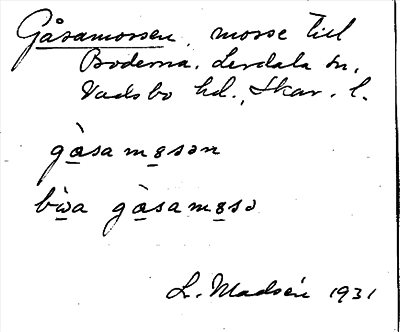 Gåsamossen, mosse till
Boderna. Lerdala sn,
Vadsbo hd., Skar. l.
gåsamɷsən
bɷ̀a gåsamɷsə
L. Madsén 1931